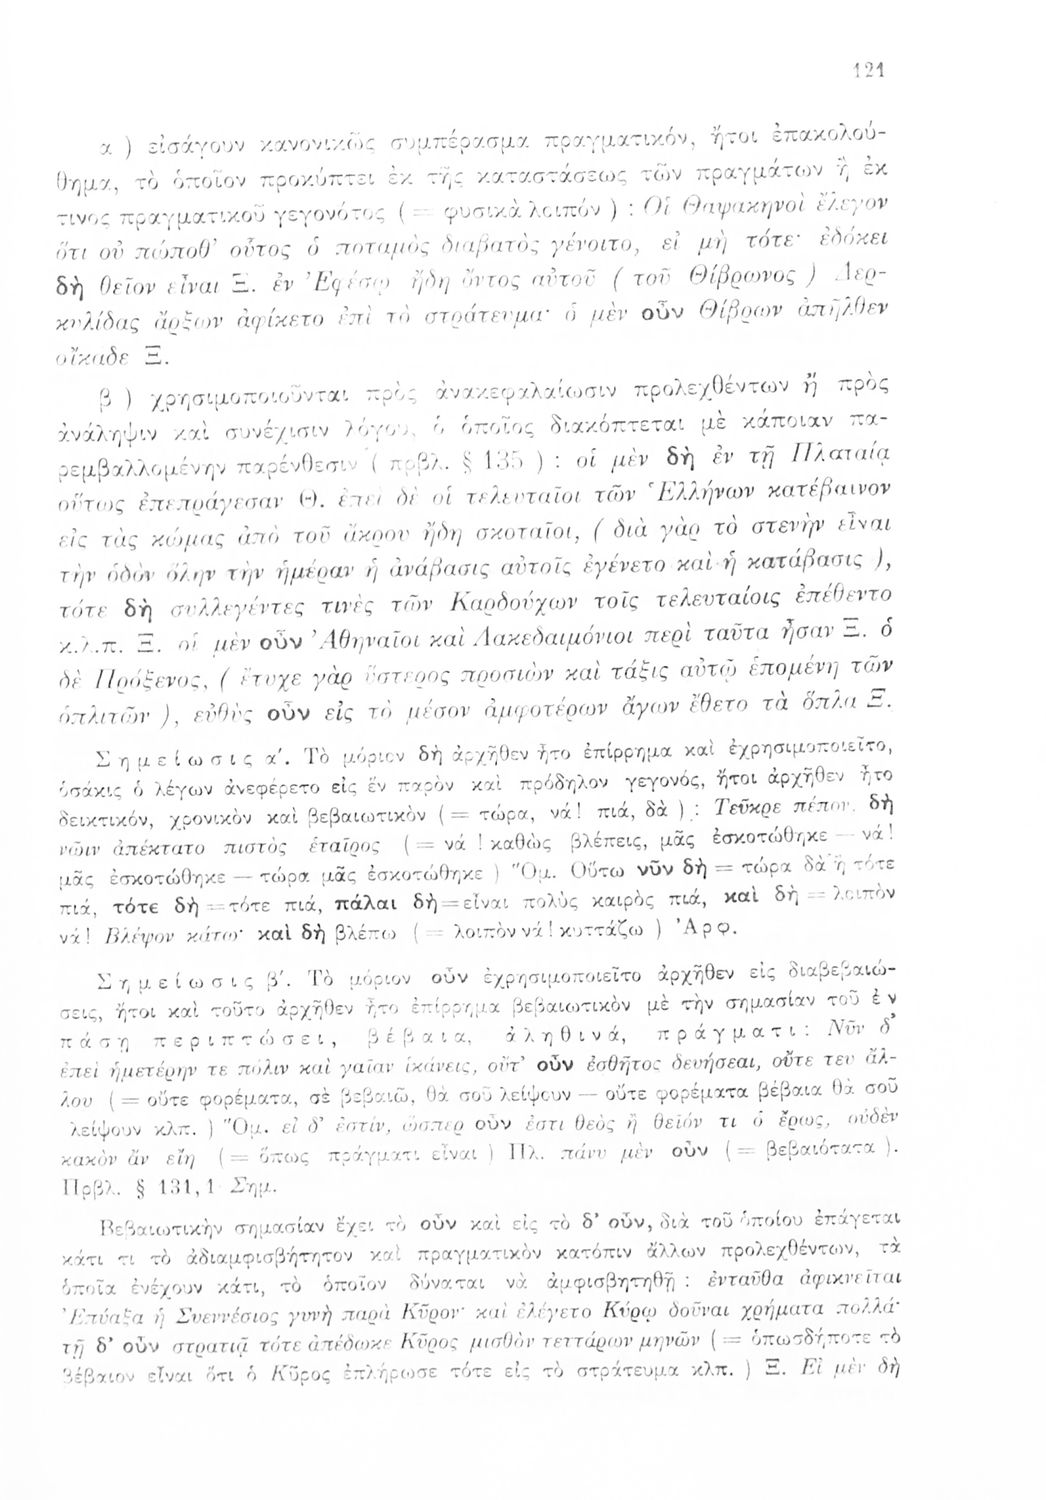 121
α ) εἰσάγουν κανονικῶς συμπέρασμα πραγματικόν, ἤτοι ἐπακολού-
θημα, τὸ ὁποῖον προκύπτει ἐκ τῆς καταστάσεως τῶν πραγμάτων ἢ ἐκ
τινος πραγματικοῦ γεγονότος ( = φυσικὰ λοιπόν ) : Οἱ Θαψακηνοὶ ἔλεγον
ὅτι οὐ πώποθ’ οὗτος ὁ ποταμὸς διαβατὸς γένοιτο, εἰ μὴ τότε· ἐδόκει
δὴ θεῖον εἶναι Ξ. ἐν Ἐφέσῳ ἤδη ὄντος αὐτοῦ ( τοῦ Θίβρωνος ) Δερ-
κυλίδας ἄρξων ἀφίκετο ἐπὶ τὸ στράτευμα· ὁ μὲν οὖν Θίβρων ἀπῆλθεν
οἴκαδε Ξ.
β ) χρησιμοποιοῦνται πρὸς ἀνακεφαλαίωσιν προλεχθέντων ἢ πρὸς
ἀνάληψιν καὶ συνέχισιν λόγου, ὁ ὁποῖος διακόπτεται μὲ κάποιαν πα-
ρεμβαλλομένην παρένθεσιν ( πρβλ. § 135 ) : οἱ μὲν δὴ ἐν τῇ Πλαταίᾳ
οὕτως ἐπεπράγεσαν Θ. ἐπεὶ δὲ οἱ τελευταῖοι τῶν Ἑλλήνων κατέβαινον
εἰς τὰς κώμας ἀπὸ τοῦ ἄκρου ἤδη σκοταῖοι, ( διὰ γὰρ τὸ στενὴν εἶναι
τὴν ὁδὸν ὅλην τὴν ἡμέραν ἡ ἀνάβασις αὐτοῖς ἐγένετο καὶ ἡ κατάβασις ),
τότε δὴ συλλεγέντες τινὲς τῶν Καρδούχων τοῖς τελευταίοις ἐπέθεντο
κ.λ.π. Ξ. οἱ μὲν οὖν Ἀθηναῖοι καὶ Λακεδαιμόνιοι περὶ ταῦτα ἦσαν Ξ. ὁ
δὲ Πρόξενος, ( ἔτυχε γὰρ ὕστερος προσιὼν καὶ τάξις αὐτῷ ἑπομένη τῶν
ὁπλιτῶν ), εὐθὺς οὖν εἰς τὸ μέσον ἀμφοτέρων ἄγων ἔθετο τὰ ὅπλα Ξ.
Σημείωσις α΄. Τὸ μόριον δὴ ἀρχῆθεν ἦτο ἐπίρρημα καὶ ἐχρησιμοποιεῖτο,
ὁσάκις ὁ λέγων ἀνεφέρετο εἰς ἓν παρὸν καὶ πρόδηλον γεγονός, ἤτοι ἀρχῆθεν ἦτο
δεικτικόν, χρονικὸν καὶ βεβαιωτικὸν ( = τώρα, νά! πιά, δὰ ) : Τεῦκρε πέπον, δὴ
νῶιν ἀπέκτατο πιστὸς ἑταῖρος ( = νά ! καθὼς βλέπεις, μᾶς ἐσκοτώθηκε — νά !
μᾶς ἐσκοτώθηκε — τώρα μᾶς ἐσκοτώθηκε ) Ὅμ. Οὕτω νῦν δὴ = τώρα δὰ ἢ τότε
πιά, τότε δὴ = τότε πιά, πάλαι δὴ = εἶναι πολὺς καιρὸς πιά, καὶ δὴ = λοιπὸν
νά! Βλέψον κάτω· καὶ δὴ βλέπω ( = λοιπὸν νά! κυττάζω ) Ἀρφ.
Σημείωσις β΄. Τὸ μόριον οὖν ἐχρησιμοποιεῖτο ἀρχῆθεν εἰς διαβεβαιώ-
σεις, ἤτοι καὶ τοῦτο ἀρχῆθεν ἦτο ἐπίρρημα βεβαιωτικὸν μὲ τὴν σημασίαν τοῦ ἐν
πάσῃ περιπτώσει, βέβαια, ἀληθινά, πράγματι : Νῦν δ’
ἐπεὶ ἡμετέρην τε πόλιν καὶ γαῖαν ἱκάνεις, οὔτ’ οὖν ἐσθῆτος δευήσεαι, οὔτε τευ ἄλ-
λου ( = οὔτε φορέματα, σὲ βεβαιῶ, θὰ σοῦ λείψουν — οὔτε φορέματα βέβαια θὰ σοῦ
λείψουν κλπ. ) Ὅμ. εἰ δ’ ἐστίν, ὥσπερ οὖν ἔστι θεὸς ἢ θεῖόν τι ὁ ἔρως, οὐδὲν
κακὸν ἂν εἴη ( = ὅπως πράγματι εἶναι ) Πλ. πάνυ μὲν οὖν ( = βεβαιότατα ).
Πρβλ. § 131,1 Σημ.
Βεβαιωτικὴν σημασίαν ἔχει τὸ οὖν καὶ εἰς τὸ δ’ οὖν, διὰ τοῦ ὁποίου ἐπάγεται
κάτι τι τὸ ἀδιαμφισβήτητον καὶ πραγματικὸν κατόπιν ἄλλων προλεχθέντων, τὰ
ὁποῖα ἐνέχουν κάτι, τὸ ὁποῖον δύναται νὰ ἀμφισβητηθῇ : ἐνταῦθα ἀφικνεῖται
Ἐπύαξα ἡ Συεννέσιος γυνὴ παρὰ Κῦρον· καὶ ἐλέγετο Κύρῳ δοῦναι χρήματα πολλά·
τῇ δ’ οὖν στρατιᾷ τότε ἀπέδωκε Κῦρος μισθὸν τεττάρων μηνῶν ( = ὁπωσδήποτε τὸ
βέβαιον εἶναι ὅτι ὁ Κῦρος ἐπλήρωσε τότε εἰς τὸ στράτευμα κλπ. ) Ξ. Εἰ μὲν δὴ